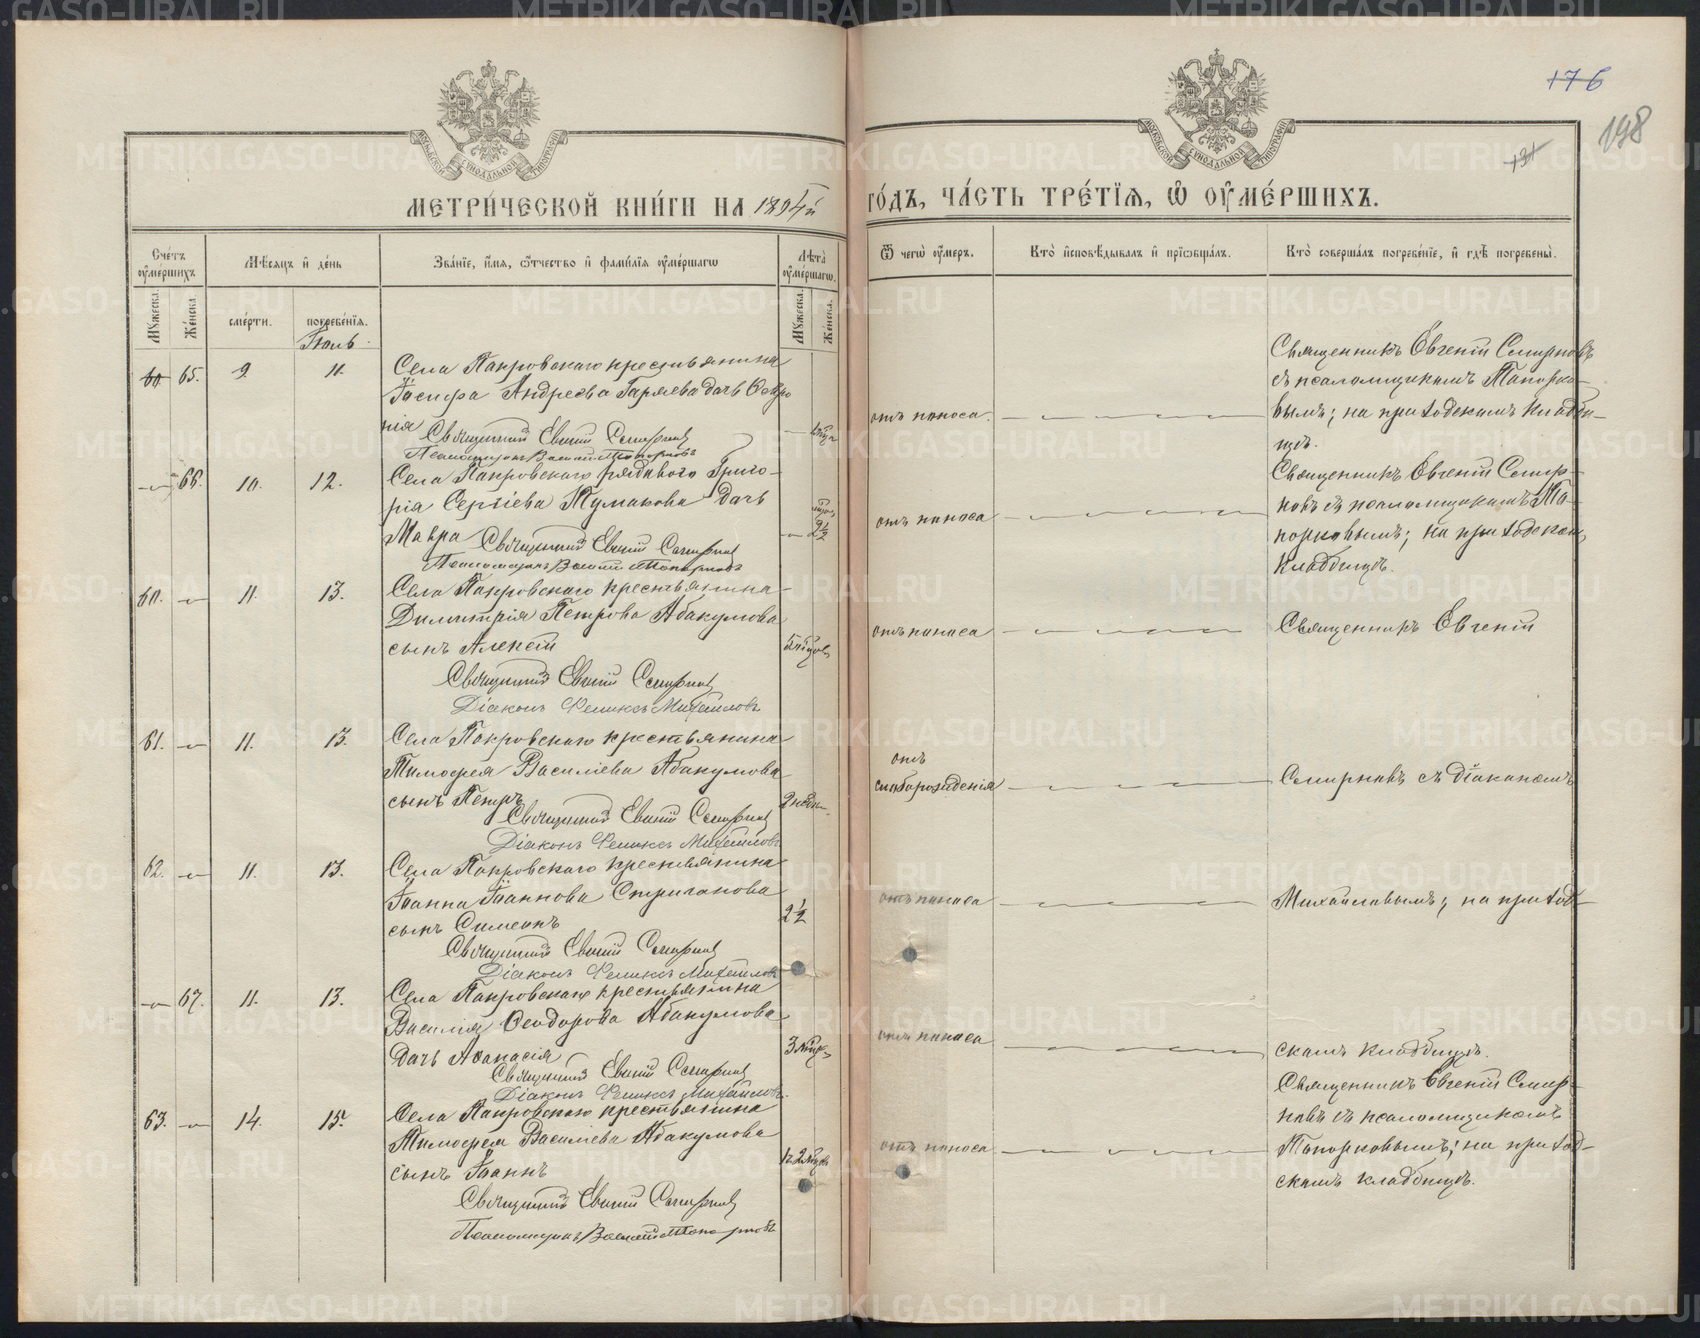 176
198
131
МЕТРИ́ЧЕСКОЙ КНИ́ГИ НА 1894й
ГО́ДЪ, ЧА́СТЬ ТРЕ́ТЇѦ, Ѽ ОУ҆МЕ́РШИХЪ.
Сче́тъ оу҆ме́ршихъ
Мѣ́сяцъ и҆ де́нь
Зва́нїе, и҆́мѧ, ѻ҆́тчество и҆ фамн́лїѧ оу҆ме́ршагѡ
Лѣта̀ оу҆ме́ршагѡ.
Ѿ чегѡ̀ оу҆́меръ.
Кто̀ и҆сповѣ́дывалъ и҆ прїѡбща́лъ.
Кто̀ соверша́лъ погребе́нїе, и҆ гдѣ̀ погребены̀.
Мꙋ́жеска.
Же́нска.
сме́рти.
погребе́нїѧ.
Мꙋ́жеска.
Же́нска.
Іюль
60. 65. 9. 11.
Села Покровскаго крестьянина
Іосифа Андреева Гаряева дочь Февро
нія
Священникъ Евгеній Смирновъ
Псаломщикъ Василій Топорковъ
отъ поноса.
Священникъ Евгеній Смирновъ
съ псаломщикомъ Топорко-
вымъ; на приходскомъ кладби-
щѣ.
66. 10. 12.
Села Покровскаго рядового Григо-
рія Сергіева Тумакова дочь
Мавра
2½
Священникъ Евгеній Смирновъ
Псаломщикъ Василій Топорковъ
отъ поноса
Священникъ Евгеній Смир-
новъ съ псаломщикомъ То-
порковымъ; на приходском
кладбищѣ.
60. 11. 13.
Села Покровскаго крестьянина
Димитрія Петрова Абакумова
сынъ Алексій
Священникъ Евгеній Смирновъ
Діаконъ Феликсъ Михайловъ
отъ поноса
Священникъ Евгеній
61. 11. 13.
Села Покровскаго крестьянина
Тимофея Василіева Абакумова
сынъ Петръ
Священникъ Евгеній Смирновъ
Діаконъ Феликсъ Михайловъ
отъ
слаборожденія
Смирновъ съ діакономъ
62. 11. 13.
Села Покровскаго крестьянина
Іоанна Іоаннова Стриганова
сынъ Симеонъ
2½
Священникъ Евгеній Смирновъ
Діаконъ Феликсъ Михайловъ
отъ поноса
Михайловымъ; на приход-
67. 11. 13.
Села Покровскаго крестьянина
Василія Феодорова Абакумова
дочь Афанасія
3 мѣсяц
Священникъ Евгеній Смирновъ
Діаконъ Феликсъ Михайловъ
отъ поноса
скомъ кладбищѣ.
63. 14. 15.
Села Покровскаго крестьянина
Тимофея Василіева Абакумова
сынъ Іоаннъ
Священникъ Евгеній Смирновъ
Псаломщикъ Василій Топорковъ
отъ поноса
Священникъ Евгеній Смир-
новъ съ псаломщикомъ
Топорковымъ; на приход-
скомъ кладбищѣ.
METRIKI.GASO-URAL.RU